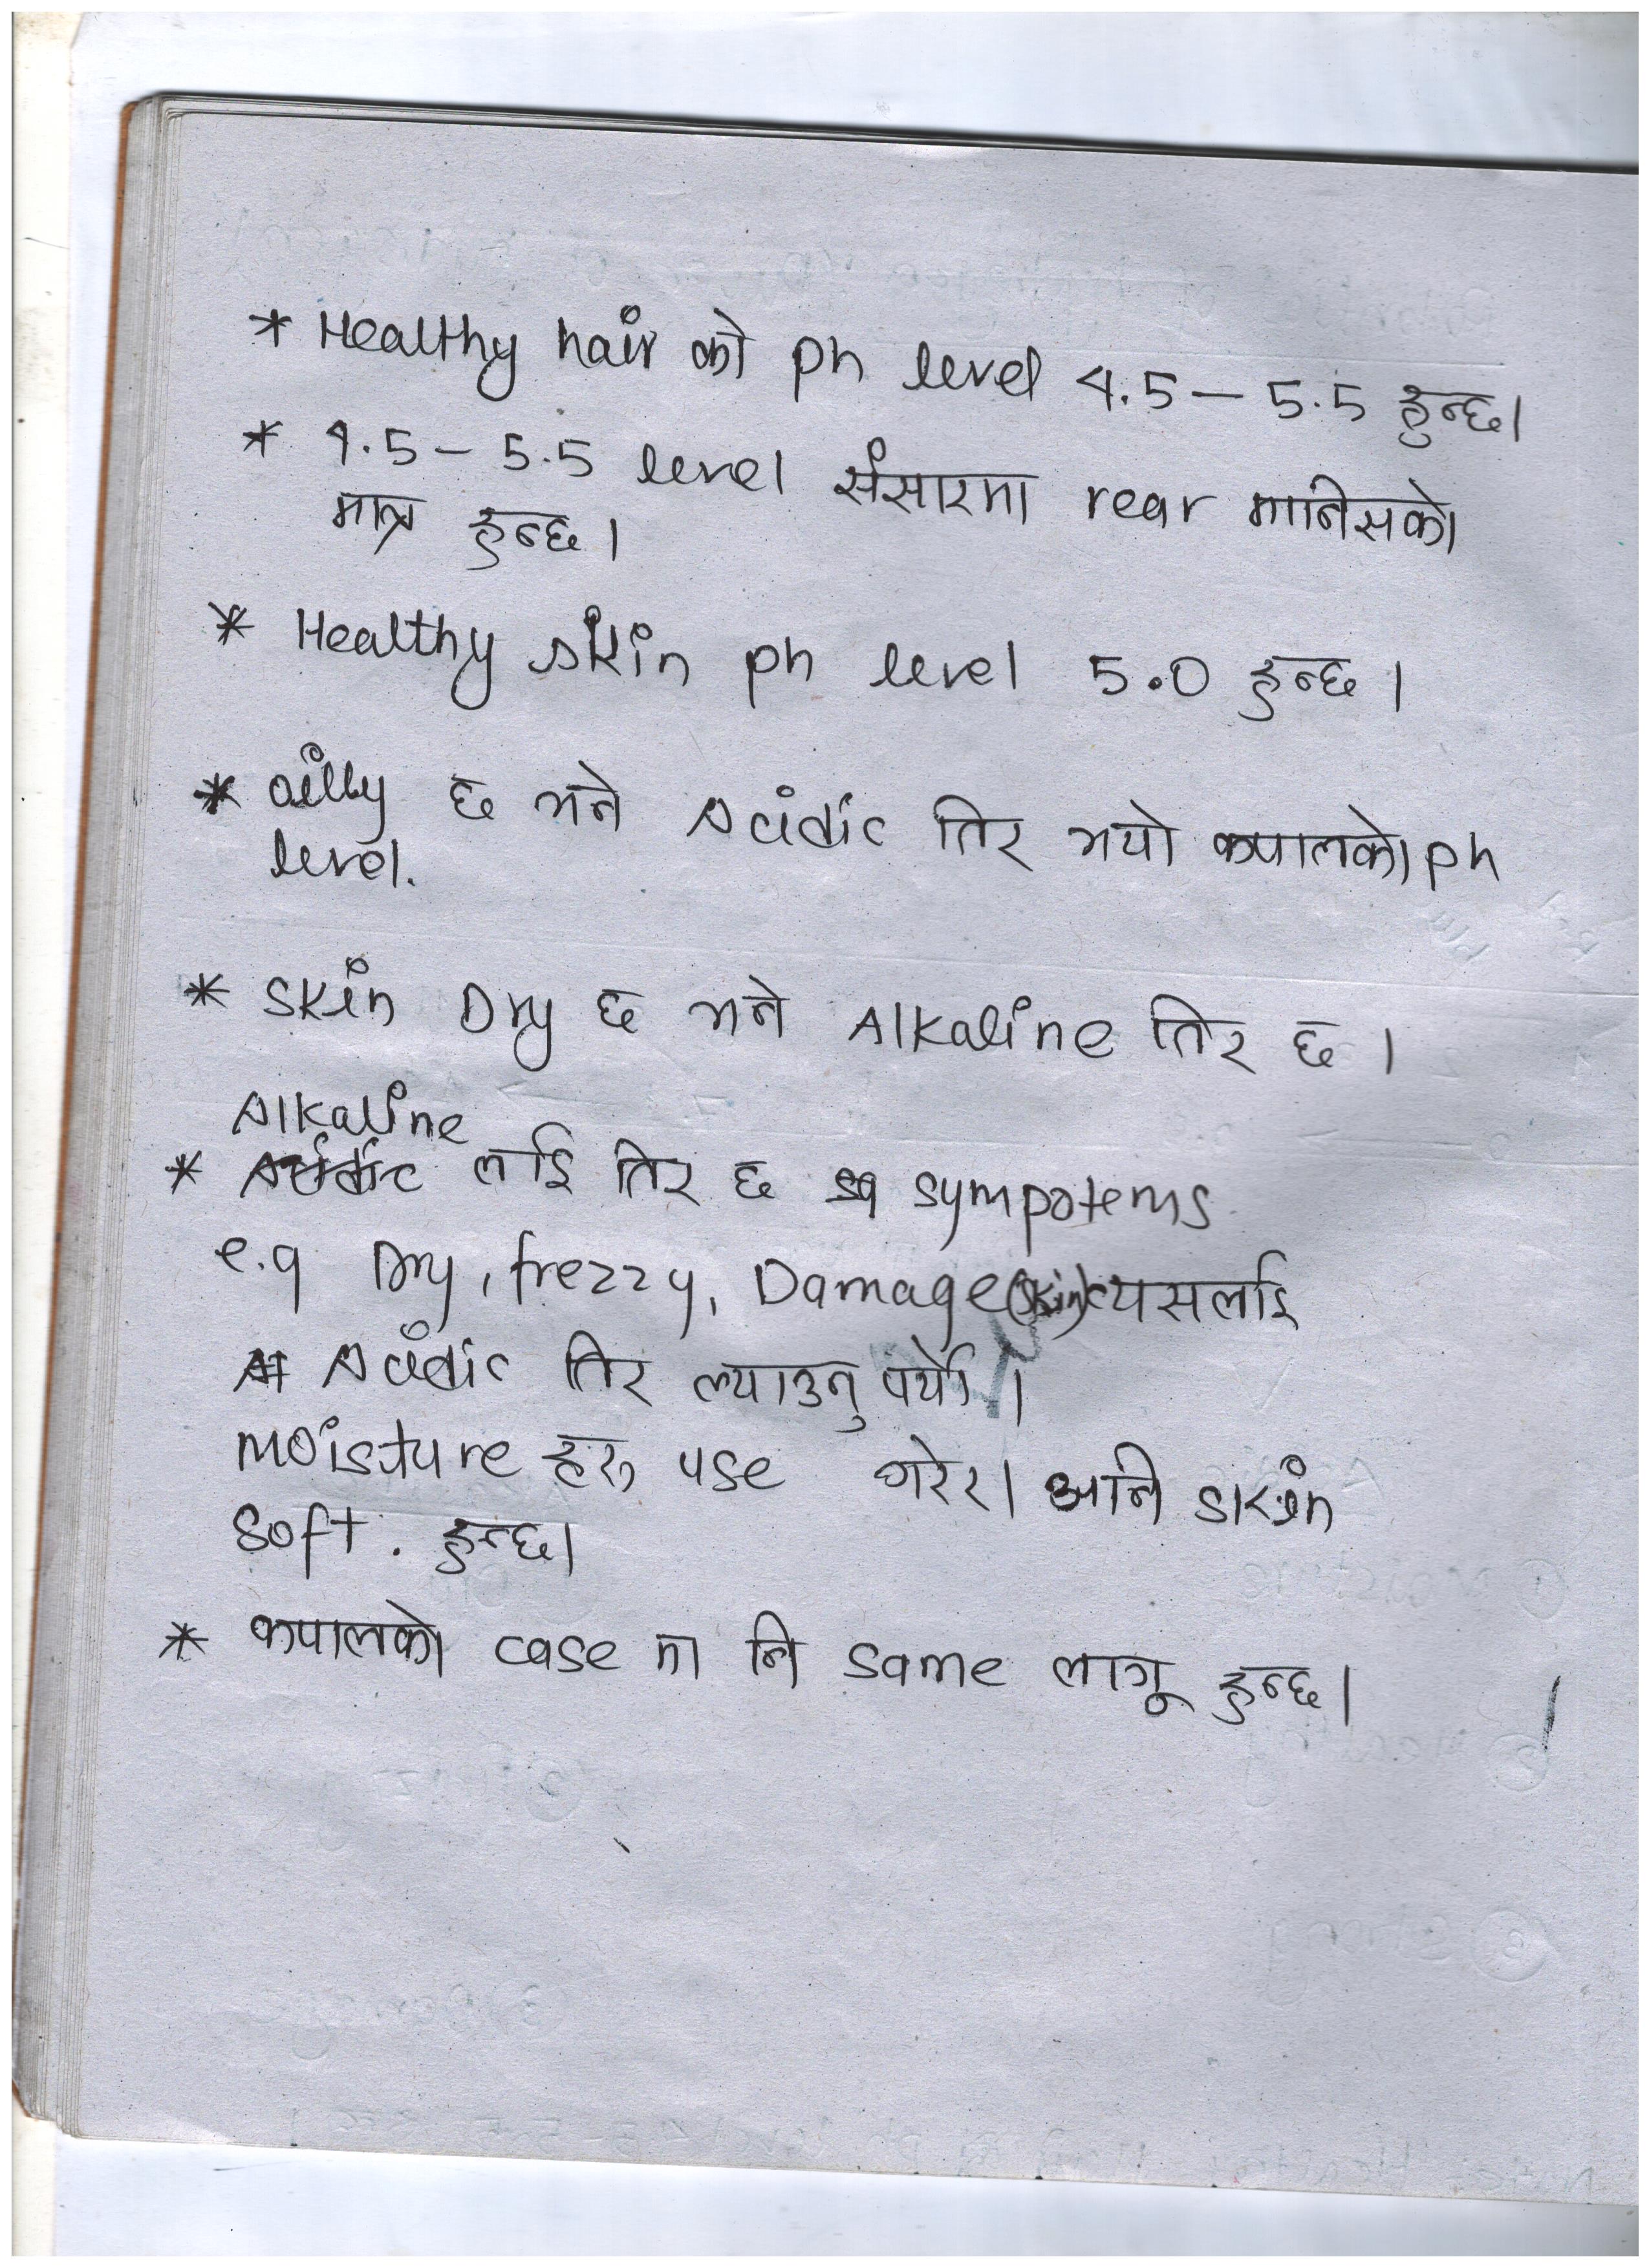 * Healthy hair को ph level 4.5 – 5.5 हुन्छ।
* 4.5 – 5.5 level संसारमा rear मानिसको
मात्र हुन्छ।
* Healthy skin ph level 5.0 हुन्छ।
* oilly छ भने Acidic तिर भयो कपालको ph
level.
* Skin Dry छ भने Alkaline तिर छ।
Alkaline
* लाई तिर छ sympotems
e.g Dry, frezzy, Damage (skin) त्यसलाई
Acidic तिर ल्याउनु पर्यो।
moisture हरु use गरेर। अनि skin
soft. हुन्छ।
* कपालको case मा नि same लागू हुन्छ।